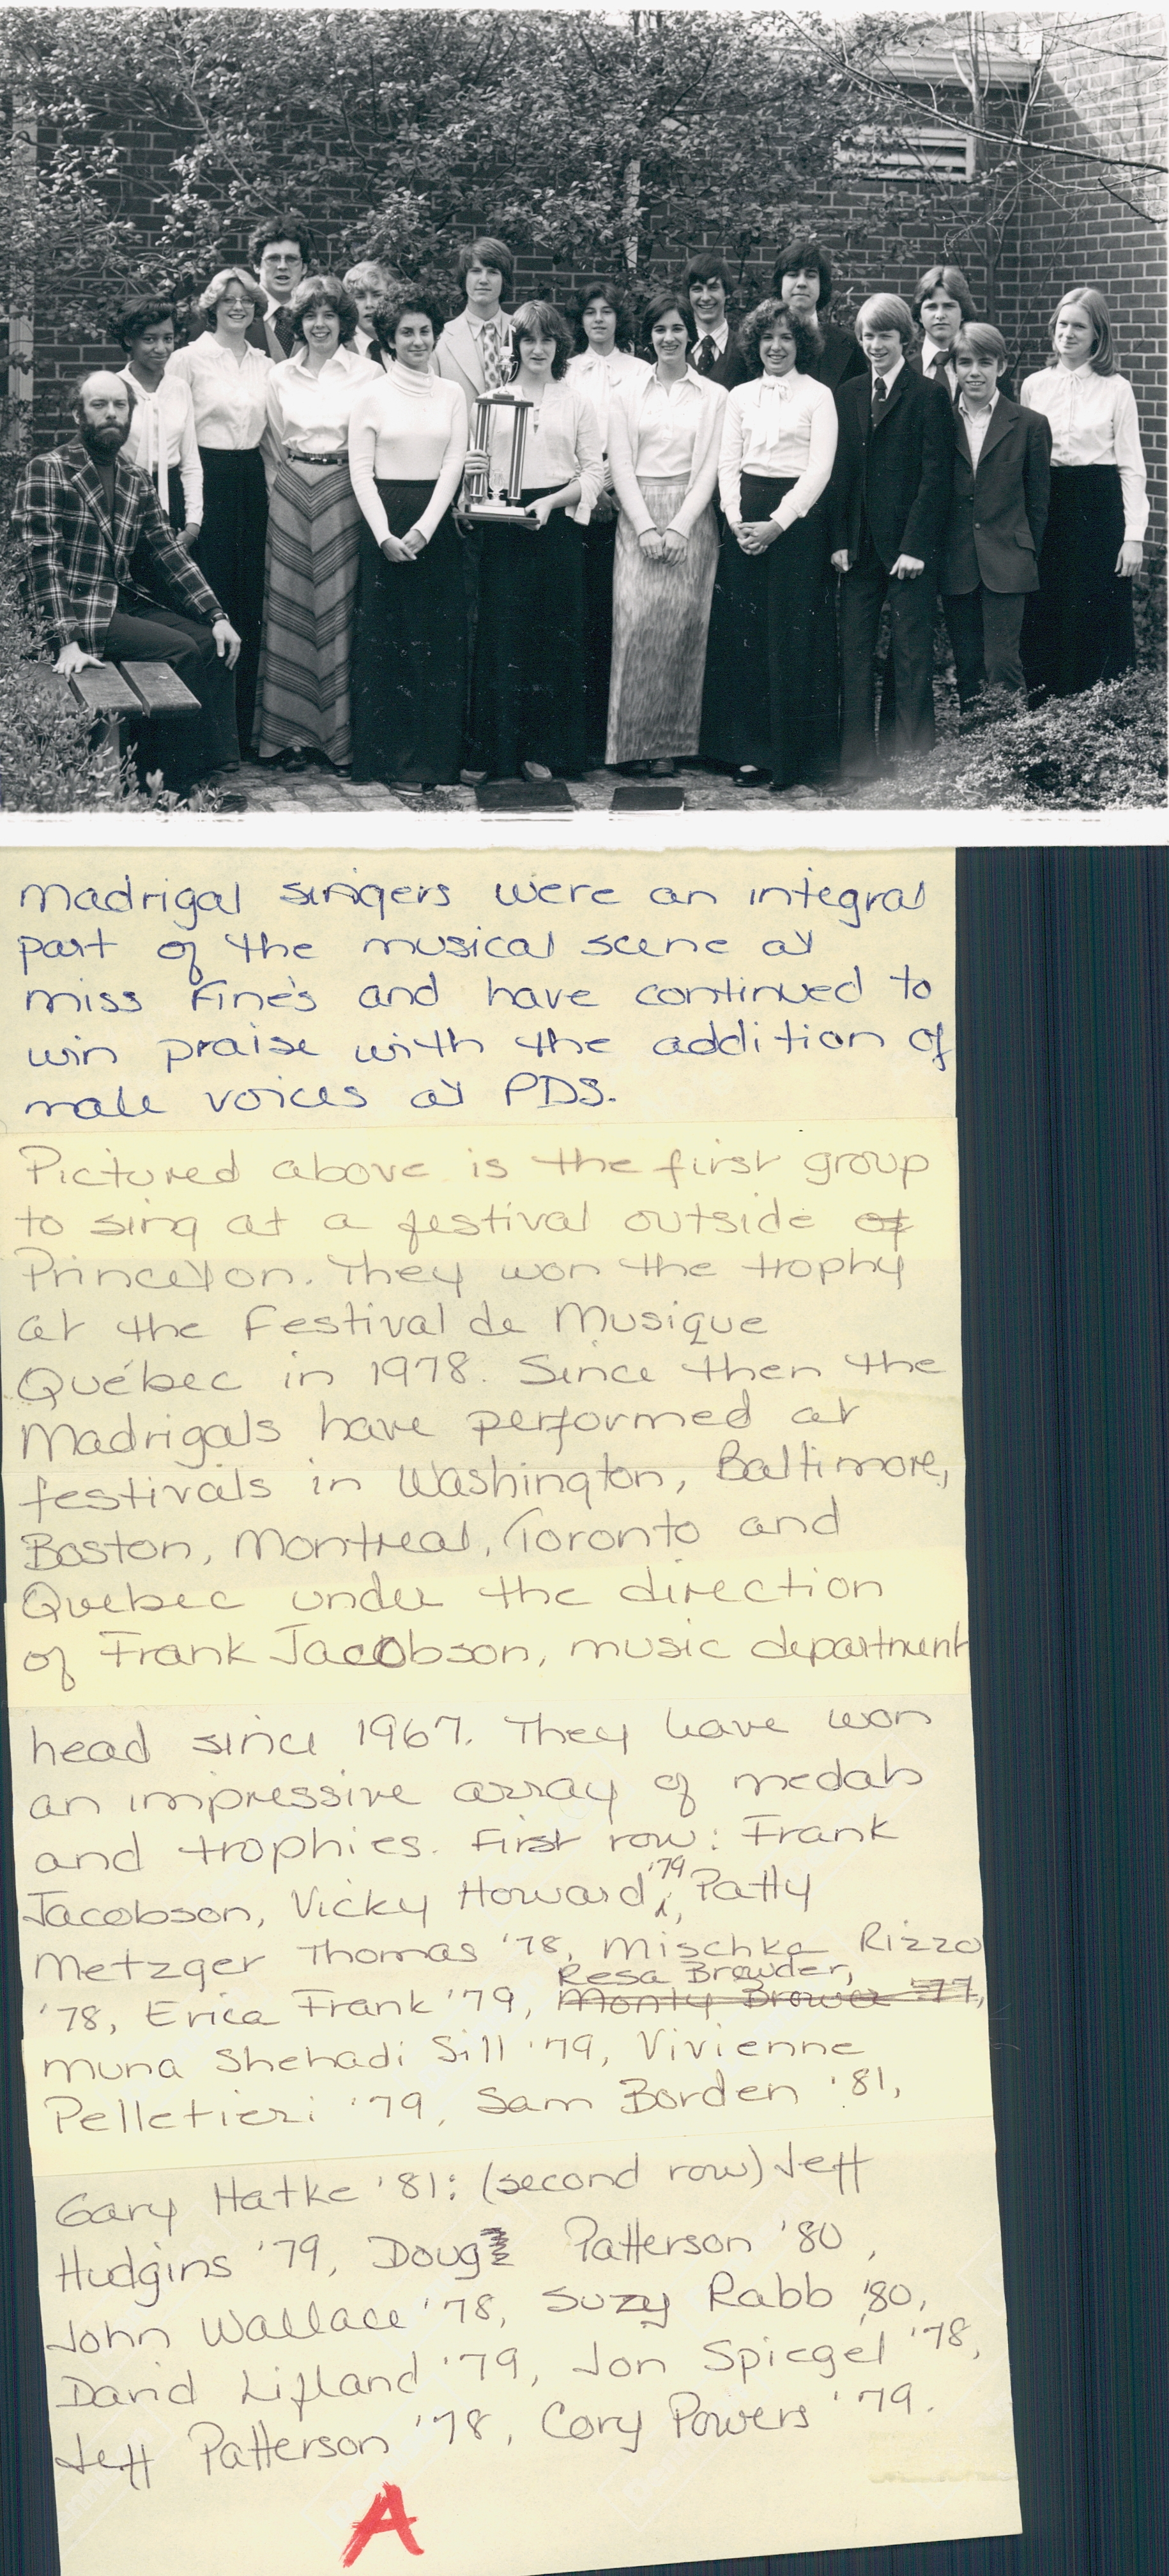 Madrigal singers were an integral
part of the musical scene at
Miss Fine's and have continued to
win praise with the addition of
male voices at PDS.
Pictured above is the first group
to sing at a festival outside of
Princeton. They won the trophy
at the Festival de Musique
Québec in 1978. Since then the
Madrigals have performed at
festivals in Washington, Baltimore,
Boston, Montreal, Toronto and
Quebec under the direction
of Frank Jacobson, music department
head since 1967. They have won
an impressive array of medals
and trophies. First row: Frank
Jacobson, Vicky Howard '79, Patty
Metzger Thomas '78, Mischka Rizzo
'78, Erica Frank '79, Resa Browder,
Monty Brower '77,
Muna Shehadi Sill '79, Vivienne
Pelletieri '79, Sam Borden '81,
Gary Hatke '81: (second row) Jeff
Hudgins '79, Doug Patterson '80,
John Wallace '78, Suzy Rabb '80,
David Lifland '79, Jon Spiegel '78,
Jeff Patterson '78, Cory Powers '79.
A